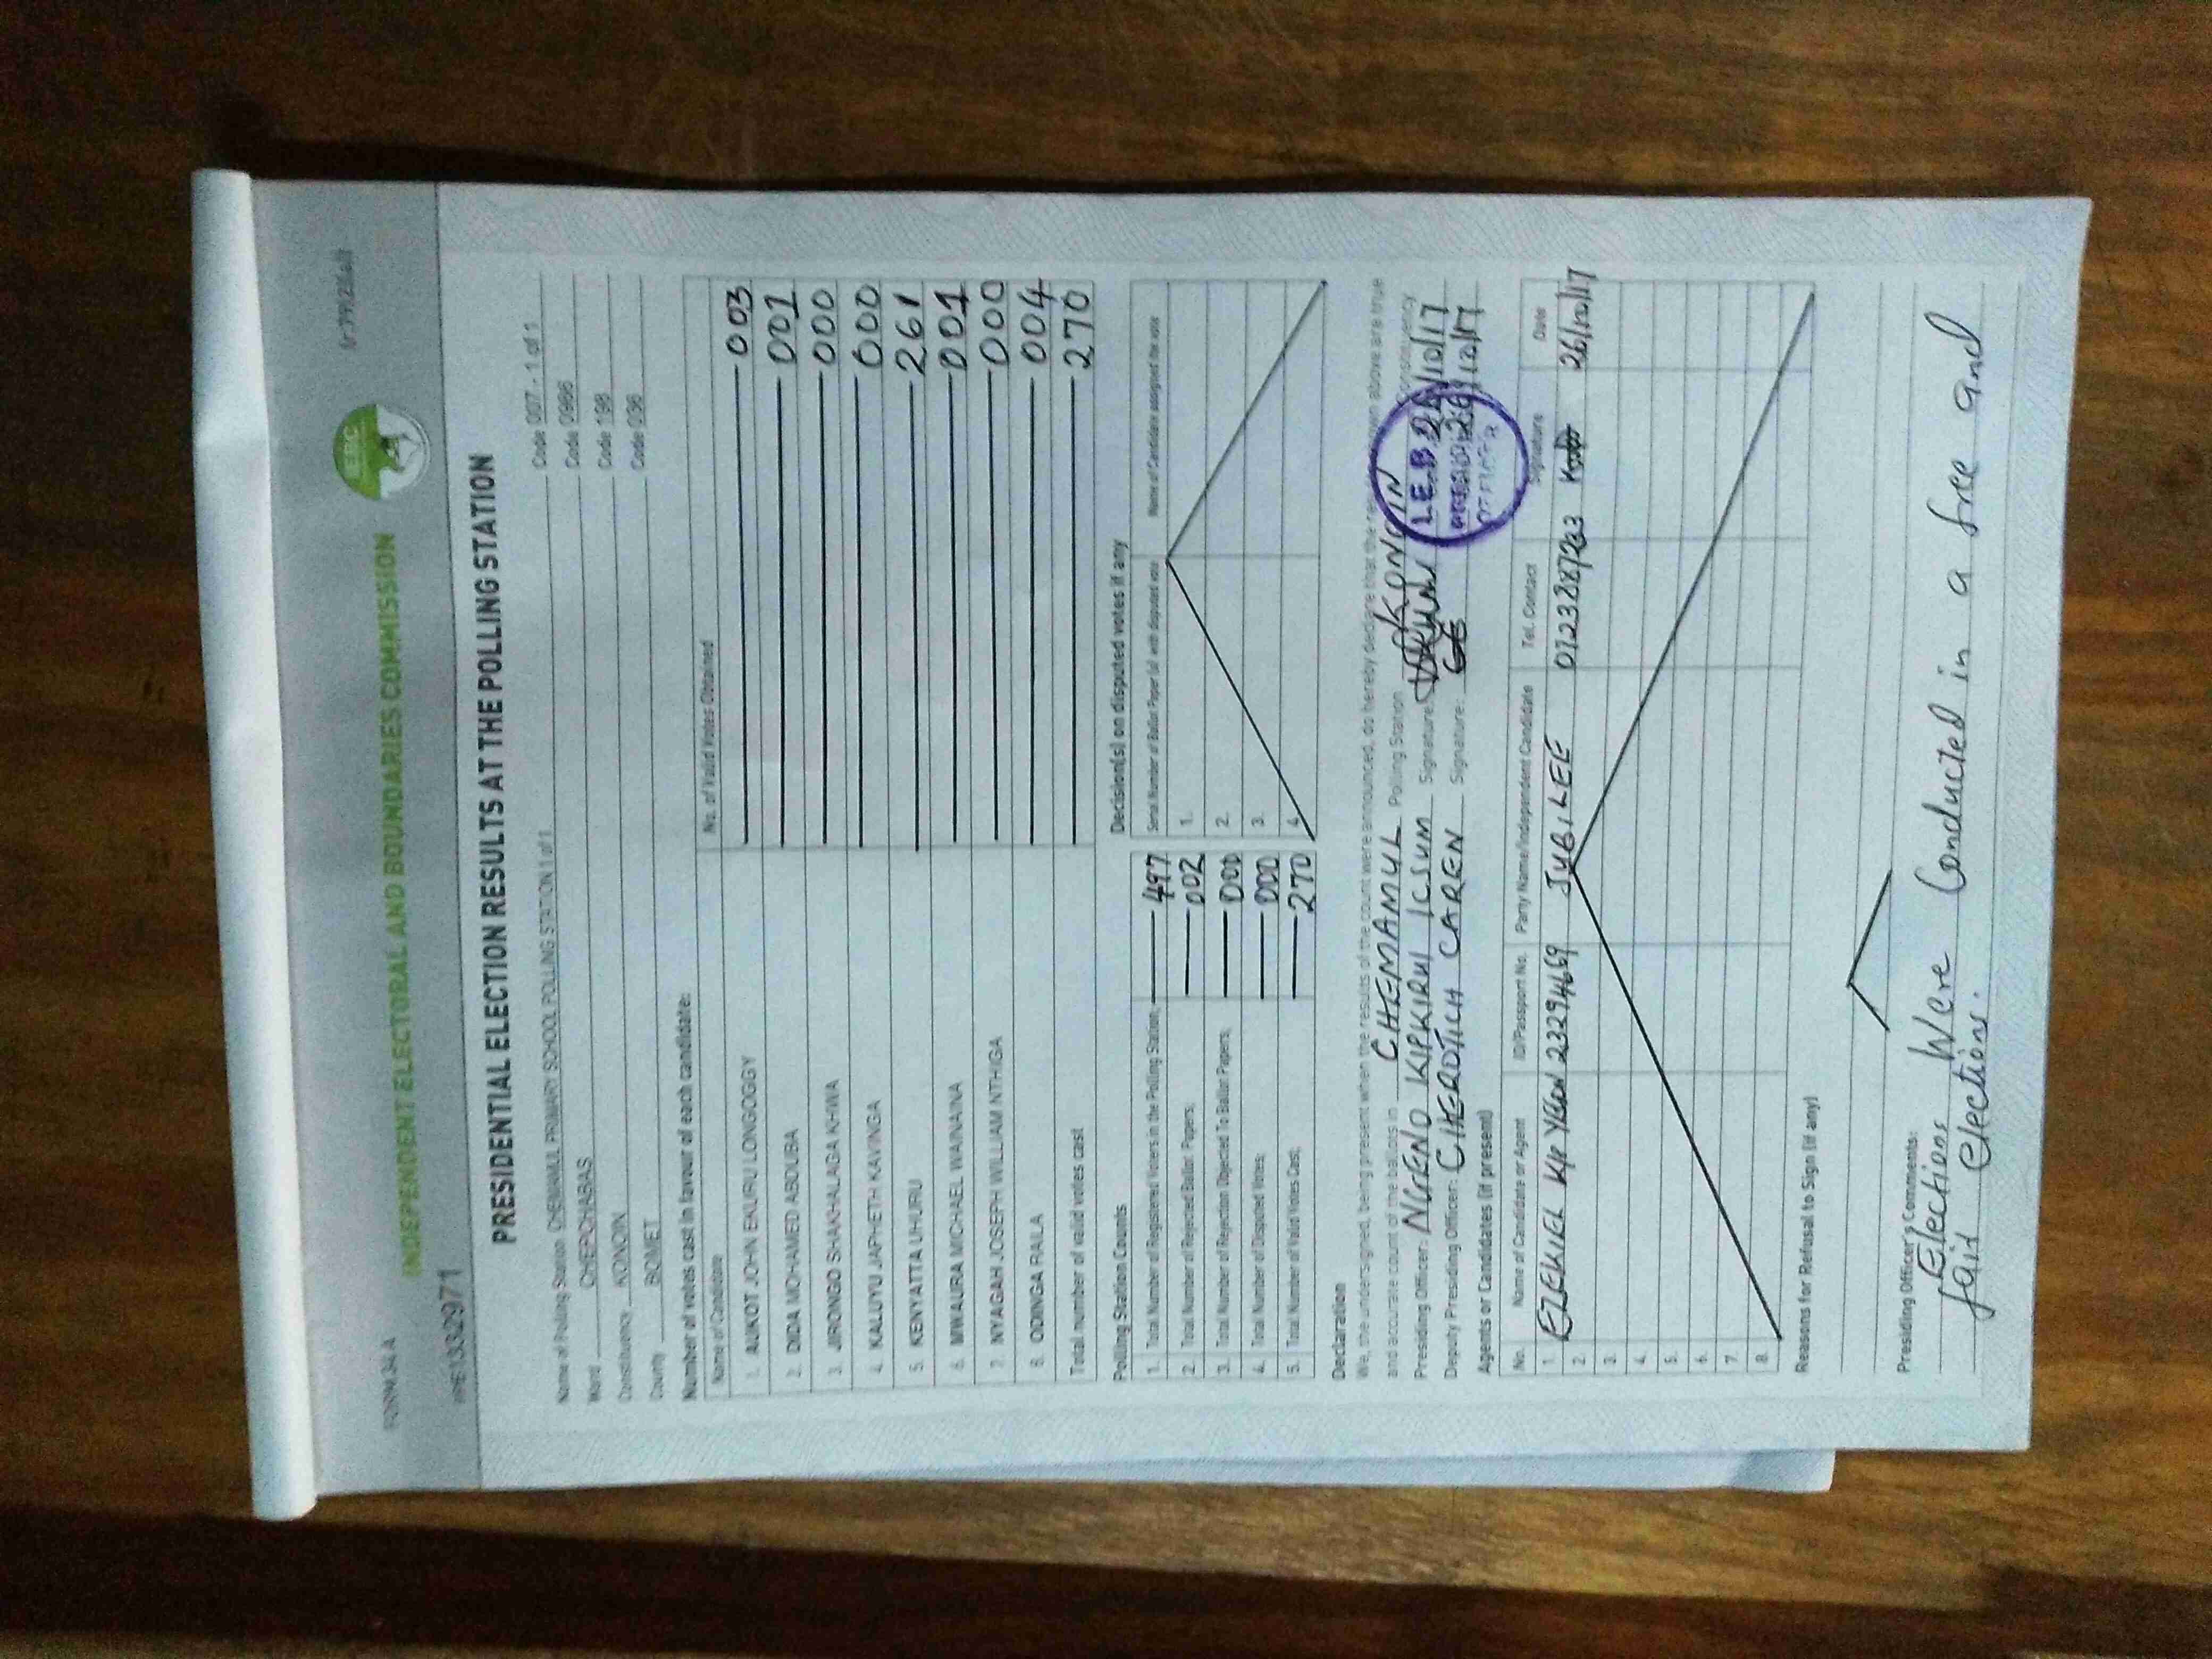 FORM 34 A
INDEPENDENT ELECTORAL AND BOUNDARIES COMMISSION
IEBC
PRESIDENTIAL ELECTION RESULTS AT THE POLLING STATION
Name of Polling Station CHEMAMUL PRIMARY SCHOOL POLLING STATION 1 of 1 Code 007 - 1 of 1
Ward CHEPCHABAS Code 0986
Constituency KONOIN Code 198
County BOMET Code 036
Number of votes cast in favour of each candidate:
Name of Candidate No. of Valid Votes Obtained
1. AUKOT JOHN EKURU LONGOGGY 003
2. DIDA MOHAMED ABDUBA 001
3. JIRONGO SHAKHALAGA KHWA 000
4. KALUYU JAPHETH KAVINGA 000
5. KENYATTA UHURU 261
6. MWAURA MICHAEL WAINAINA 001
7. NYAGAH JOSEPH WILLIAM NTHIGA 000
8. ODINGA RAILA 004
Total number of valid votes cast 270
Polling Station Counts
1. Total Number of Registered Voters in the Polling Station; 497
2. Total Number of Rejected Ballot Papers; 002
3. Total Number of Rejection Objected To Ballot Papers; 000
4. Total Number of Disputed Votes; 000
5. Total Number of Valid Votes Cast; 270
Decision(s) on disputed votes if any
Serial Number of Ballot Paper (s) with disputed vote Name of Candidate assigned the vote
1.
2.
3.
4.
Declaration
We, the undersigned, being present when the results of the count were announced, do hereby declare that the above are true
and accurate count of the ballots in CHEMAMUL Polling Station KONOIN Constituency
Presiding Officer: NGENO KIPKIRUI ICSUM Signature: 26/10/17
Deputy Presiding Officer: CHEROTICH CAREN Signature: 26/10/17
I.E.B.C
PRESIDING
OFFICER
Agents or Candidates (if present)
No. Name of Candidate or Agent ID/Passport No. Party Name/Independent Candidate Tel. Contact Signature Date
1. EZEKIEL KIP YEGON 23294669 JUBILEE 0723887233 26/10/17
2.
3.
4.
5.
6.
7.
8.
Reasons for Refusal to Sign (if any)
Presiding Officer's Comments:
Elections Were Conducted in a free and
fair elections.